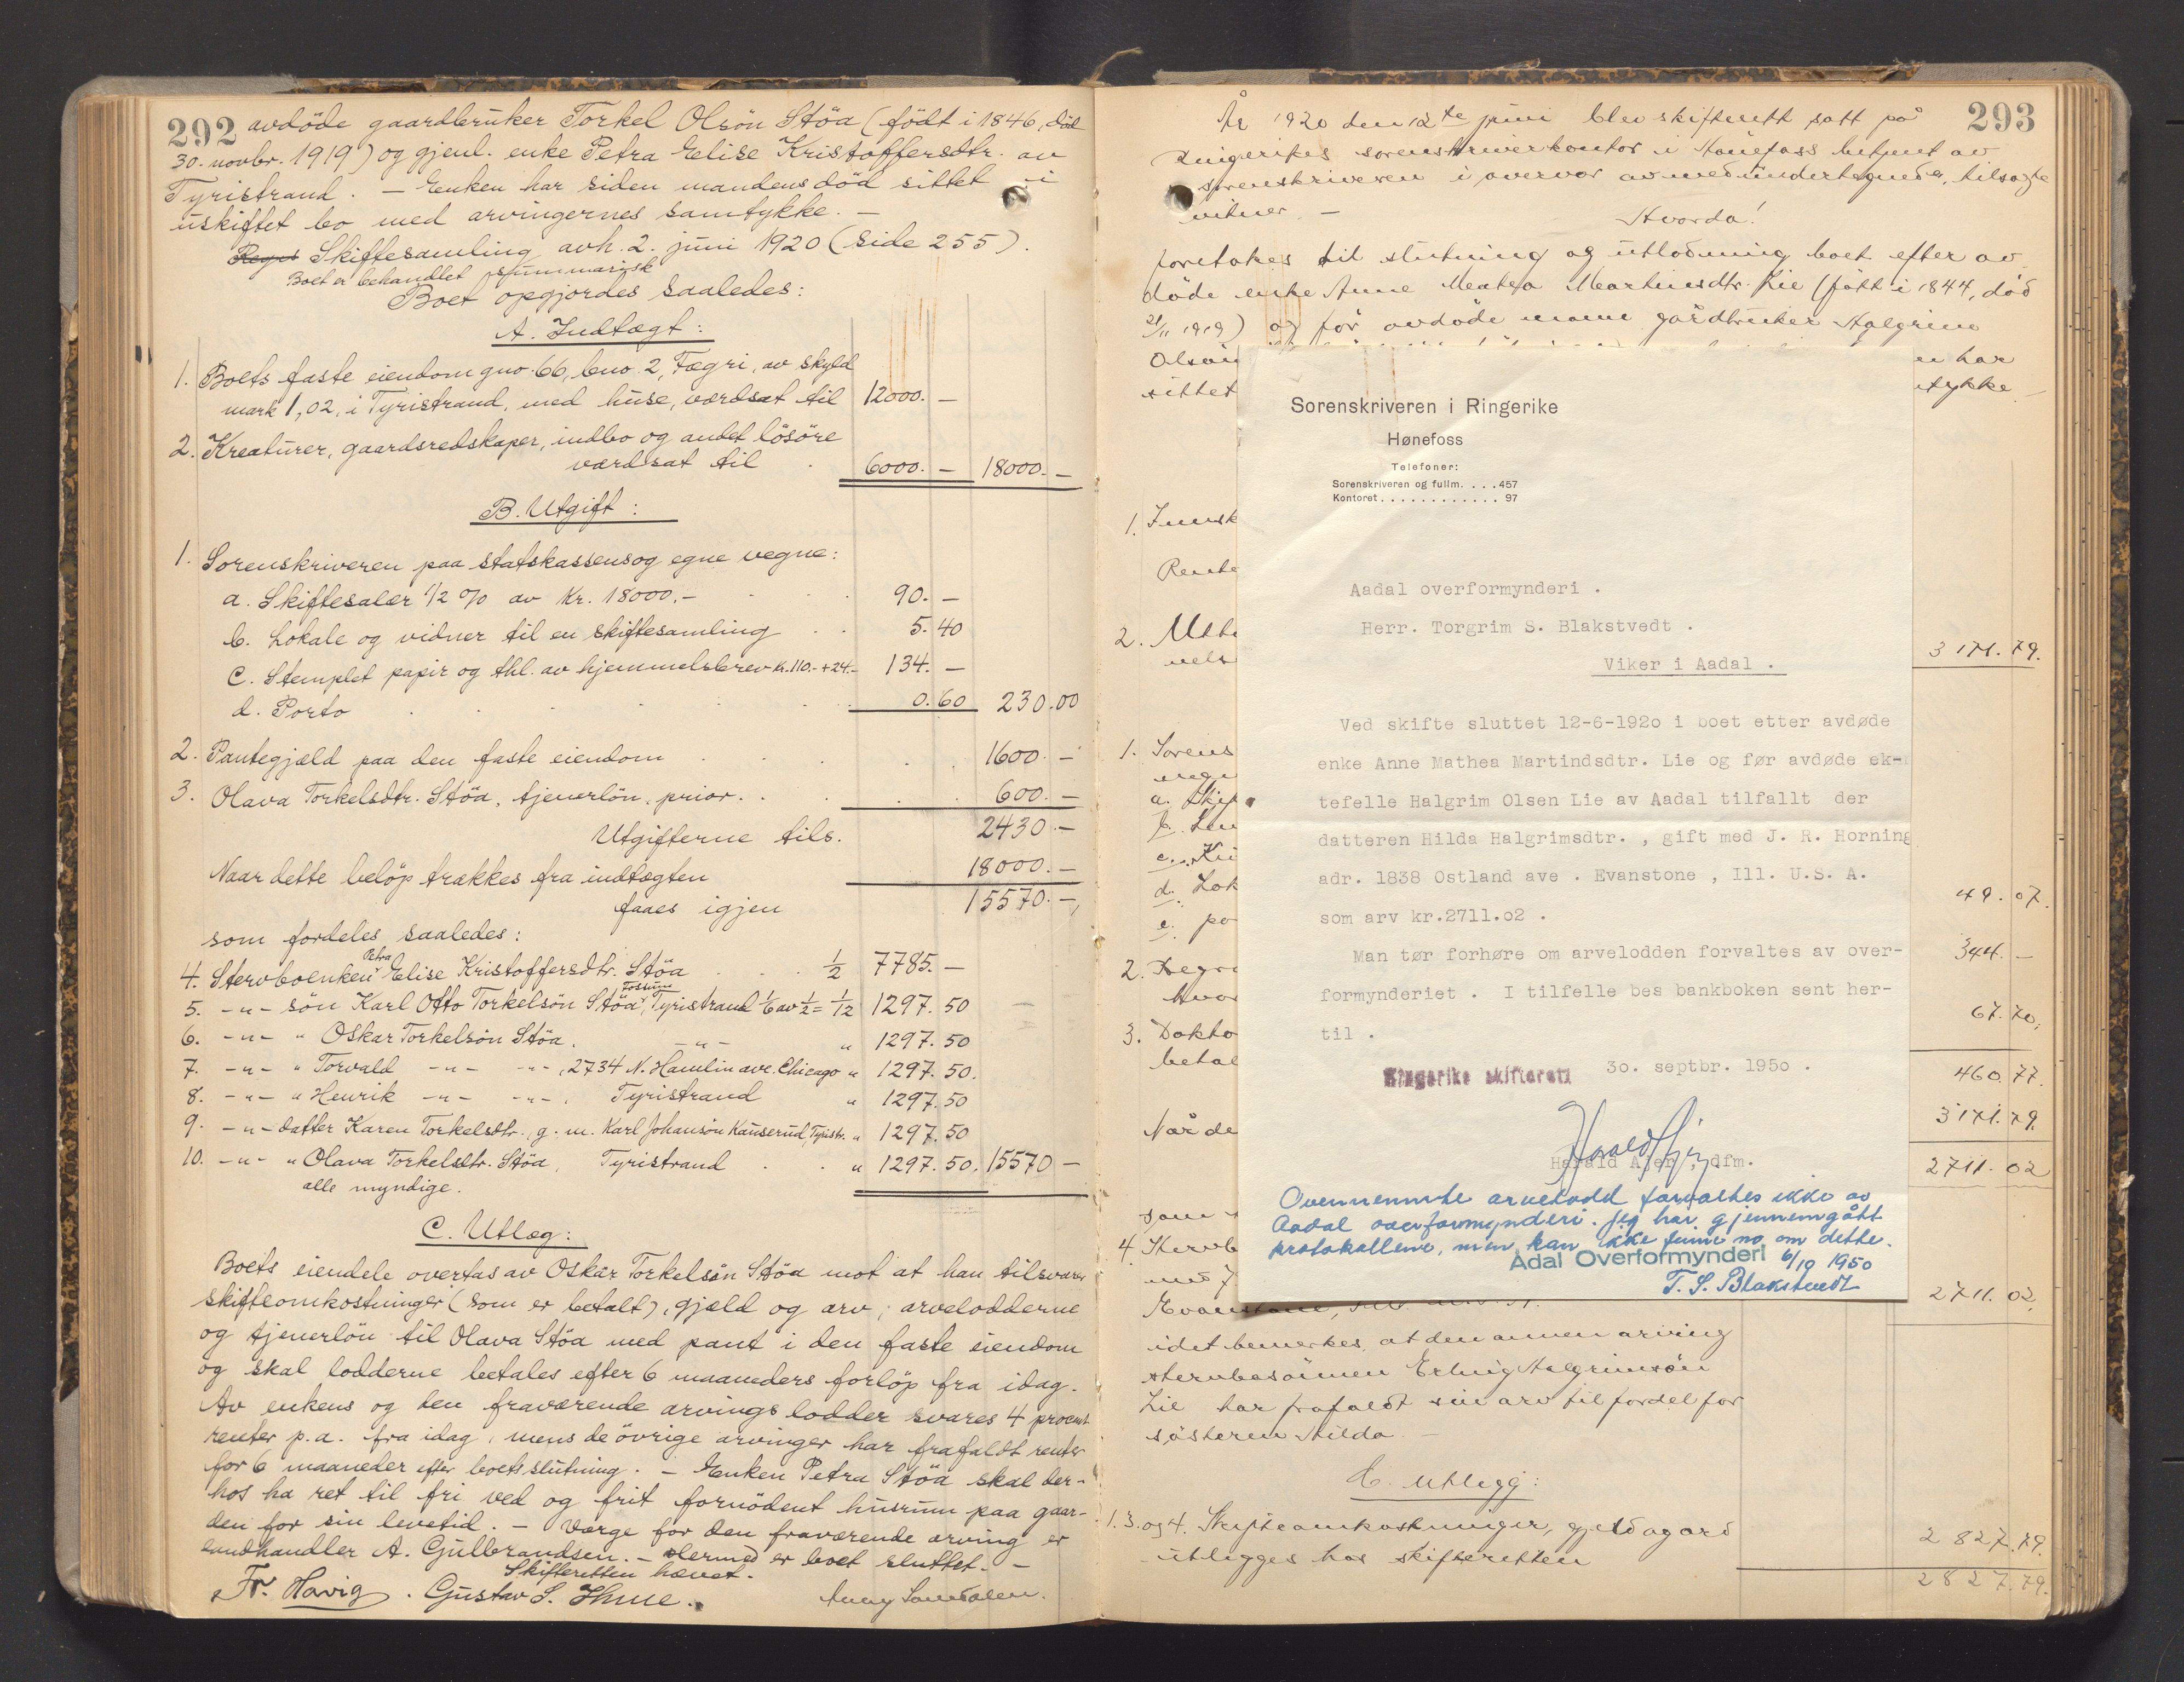 292 avdöde gaardbruker Torkel Olsön Stöa (födt i 1846, död
30. novbr. 1919) og gjenl. enke Petra Elise Kristoffersdtr. av
Tyristrand. — Enken har siden mandens död sittet i
uskiftet bo med arvingernes samtykke. —
Skiftesamling avh. 2. juni 1920 (side 255).
Boet er behandlet summarisk
Boet opgjordes saaledes:
A. Indtægt:
1. Boets faste eiendom gno. 66, bno 2, Fægri, av skyld
mark 1,02, i Tyristrand, med huse, værdsat til 12000. —
2. Kreaturer, gaardsredskaper, indbo og andet lösöre
værdsat til 6000. — 18000. —
B. Utgift:
1. Sorenskriveren paa statskassens og egne vegne:
a. Skiftesalær 1/2 % av Kr. 18000.— 90. —
b. Lokale og vidner til en skiftesamling 5. 40
c. Stemplet papir og thl. av hjemmelsbrev kr. 110.- + 24.- 134. —
d. Porto 0. 60 230. 00
2. Pantegjæld paa den faste eiendom 1600. —
3. Olava Torkelsdtr. Stöa, tjenerlön, prior. 600. —
Utgifterne tils. 2430. —
Naar dette belöp trækkes fra indtægten 18000. —
faaes igjen 15570. —
som fordeles saaledes:
4. Stervboenken Petra Elise Kristoffersdtr. Stöa 1/2 7785. —
5. -"- sön Karl Otto Torkelsön Stöa, Fossum Tyristrand 1/6 av 1/2 = 1/12 1297. 50
6. -"- " Oskar Torkelsön Stöa, -"- " 1297. 50
7. -"- " Torvald -"- -"-, 2734 N. Hamlin ave. Chicago " 1297. 50.
8. -"- " Henrik -"- -"-, Tyristrand " 1297. 50
9. -"- datter Karen Torkelsdtr., g. m. Karl Johansön Kauserud, Tyristr. " 1297. 50
10. -"- " Olava Torkelsdtr. Stöa, Tyristrand " 1297. 50. 15570 —
alle myndige.
C. Utlæg:
Boets eiendele overtas av Oskar Torkelsön Stöa mot at han tilsvarer
skifteomkostninger (som er betalt), gjæld og arv; arvelodderne
og tjenerlön til Olava Stöa med pant i den faste eiendom
og skal lodderne betales efter 6 maaneders forlöp fra idag.
Av enkens og den fraværende arvings lodder svares 4 procent
renter p.a. fra idag, mens de övrige arvinger har frafaldt renter
for 6 maaneder efter boets slutning. — Enken Petra Stöa skal der-
hos ha ret til fri ved og frit fornödent husrum paa gaar-
den for sin levetid. — Værge for den fraværende arving er
landhandler A. Gulbrandsen. — Hermed er boet sluttet. —
Skifteretten hævet.
Fr. Havig. Gustav S. Thue.
293
År 1920 den 12te juni blev skifterett satt på
Ringerikes sorenskriverkontor i Hönefoss betjent av
sorenskriveren i overvær av medundertegnede, tilsagte
vitner. —
Hvorda!
foretokes til slutning og utlodning boet efter av-
döde enke Anne Matea Martinsdtr. Lie (fött i 1844, död
21/11 1919) og för avdöde mann gårdbruker Halgrim
Olsön
en har
sittet
tykke. —
1. Innsk
Rente
2.
3171. 79.
1. Sorens
a. Skif
b.
c.
d. Lok
e. po
49. 07.
2. Begr
hvor
344. —
3. Dokto
betal
67. 70,
460. 77.
Når de
3171. 79.
2711. 02
som
4. Stervb
2711. 02,
idet bemerkes, at den annen arving
stervbosönnen Erling Halgrimsön
Lie har frafaldt sin arv til fordel for
sösteren Hilda. —
C. Utlegg:
1. 3. og 4. Skifteomkostninger, gjeld og arv 2827. 79.
utlegges hos skifteretten
2827. 79.
Sorenskriveren i Ringerike
Hønefoss
Telefoner:
Sorenskriveren og fullm. . . . 457
Kontoret . . . . . . . . . . . . 97
Aadal overformynderi .
Herr. Torgrim S. Blakstvedt .
Viker i Aadal .
Ved skifte sluttet 12-6-1920 i boet etter avdøde
enke Anne Mathea Martindsdtr. Lie og før avdøde ek-
tefelle Halgrim Olsen Lie av Aadal tilfallt der
datteren Hilda Halgrimsdtr. , gift med J. R. Horning
adr. 1838 Ostland ave . Evanstone , Ill. U.S. A.
som arv kr.2711.o2 .
Man tør forhøre om arvelodden forvaltes av over-
formynderiet . I tilfelle bes bankboken sent her-
til .
Ringerike skifterett 3o. septbr. 195o .
Harald , dfm.
Ovennevnte arvelodd forvaltes ikke av
Aadal overformynderi. Jeg har gjennemgått
protokollene, men kan ikke finne no om dette.
Ådal Overformynderi 6/10 1950
T. S. Blakstvedt